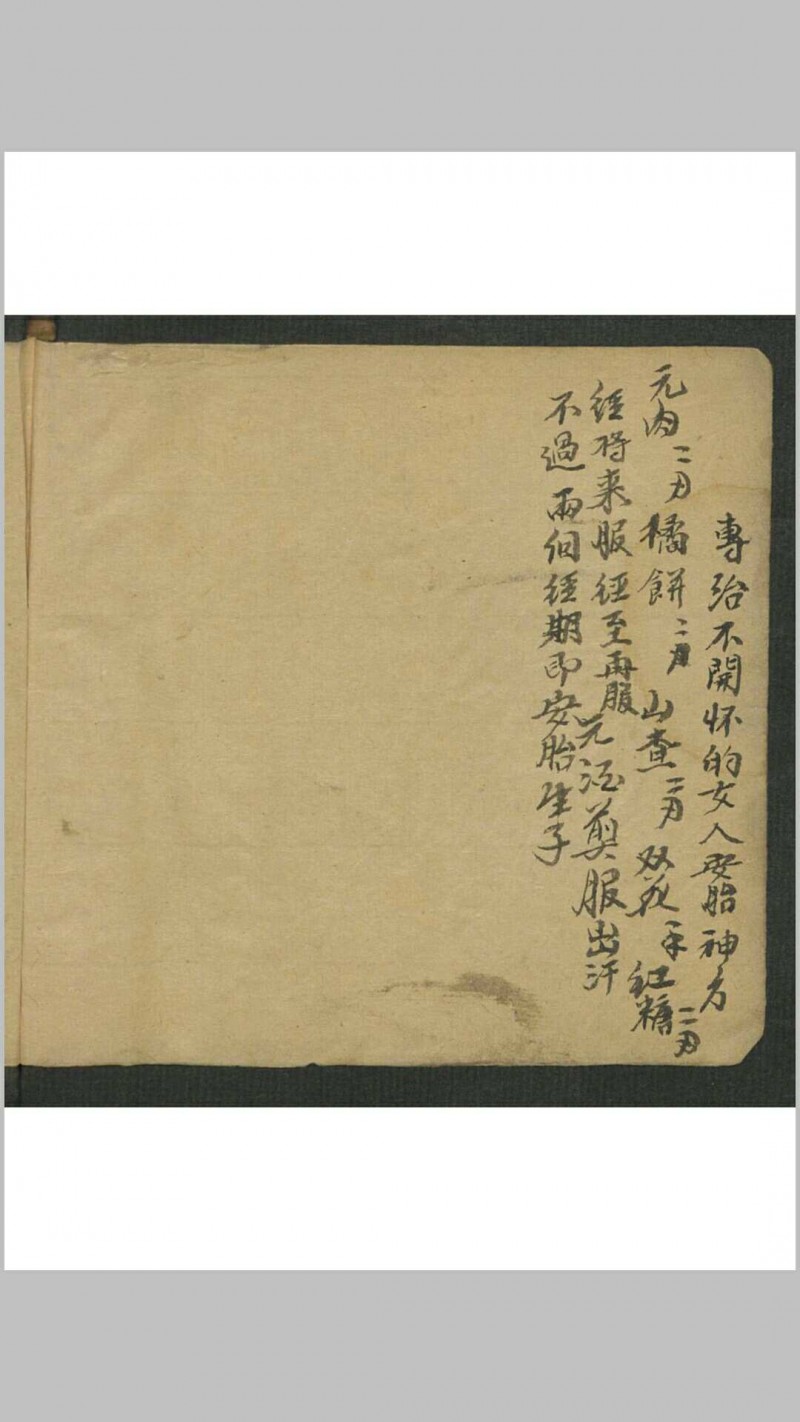 專治不開怀的女人安胎神方
元肉二刃橘餅二刃山查二刃双花 紅糖二刃
經将來服經至再服元酒煎服出汗
不過兩個經期即安胎生子